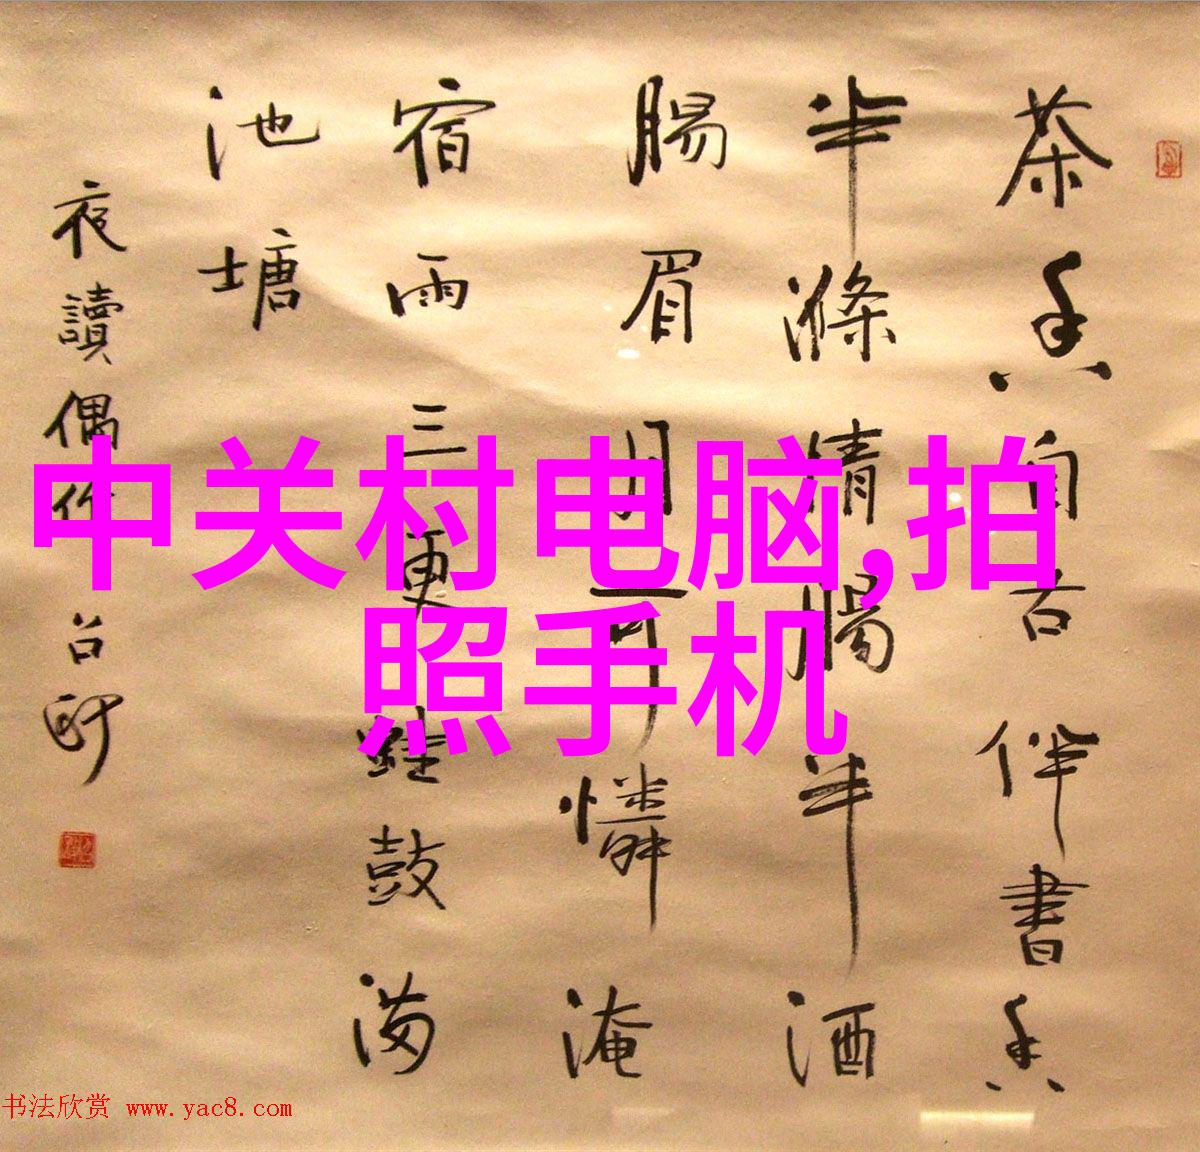 茶香自古伴書香
半滌清腸半酒
腸眉月可憐淹
宿雨三更鐘鼓满
池塘
夜讀偶作
中关村电脑,拍
照手机
书法欣赏 www.yac8.com